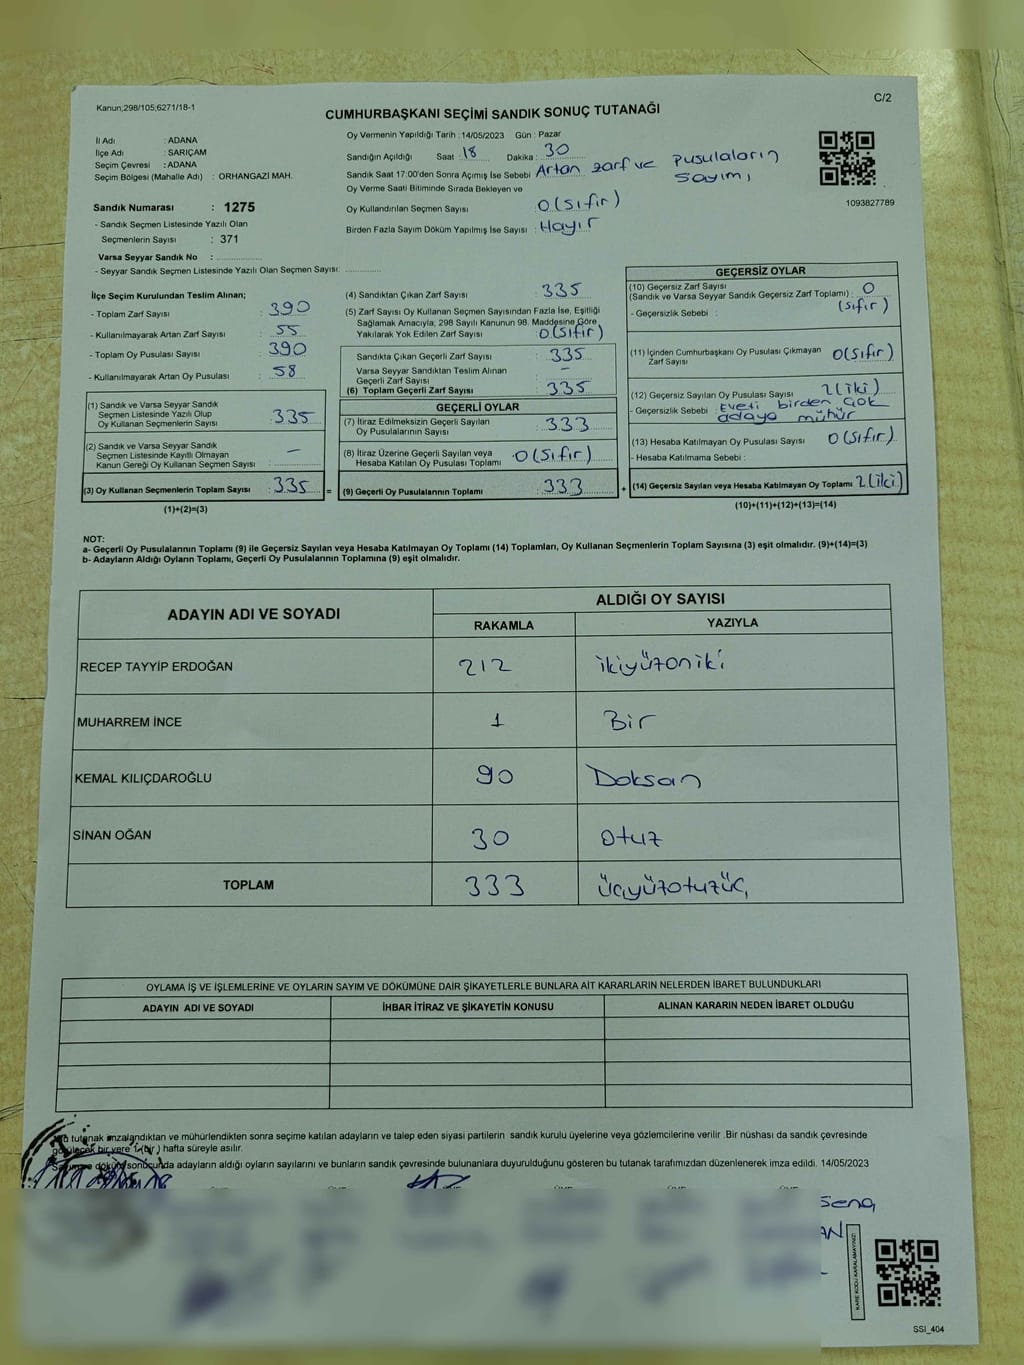 Kanun;298/105;6271/18-1
C/2
CUMHURBAŞKANI SEÇİMİ SANDIK SONUÇ TUTANAĞI
İl Adı : ADANA
İlçe Adı : SARIÇAM
Seçim Çevresi : ADANA
Seçim Bölgesi (Mahalle Adı) : ORHANGAZİ MAH.
Sandık Numarası : 1275
- Sandık Seçmen Listesinde Yazılı Olan
Seçmenlerin Sayısı : 371
Varsa Seyyar Sandık No :
- Seyyar Sandık Seçmen Listesinde Yazılı Olan Seçmen Sayısı:
Oy Vermenin Yapıldığı Tarih : 14/05/2023 Gün : Pazar
Sandığın Açıldığı Saat : 18 Dakika : 30
Sandık Saat 17:00'den Sonra Açımış İse Sebebi : Artan zarf ve pusulaların
sayımı
Oy Verme Saati Bitiminde Sırada Bekleyen ve
Oy Kullandırılan Seçmen Sayısı : 0 (sıfır)
Birden Fazla Sayım Döküm Yapılmış İse Sayısı : Hayır
1093827789
İlçe Seçim Kurulundan Teslim Alınan;
- Toplam Zarf Sayısı : 390
- Kullanılmayarak Artan Zarf Sayısı : 55
- Toplam Oy Pusulası Sayısı : 390
- Kullanılmayarak Artan Oy Pusulası : 58
(1) Sandık ve Varsa Seyyar Sandık
Seçmen Listesinde Yazılı Olup
Oy Kullanan Seçmenlerin Sayısı : 335
(2) Sandık ve Varsa Seyyar Sandık
Seçmen Listesinde Kayıtlı Olmayan
Kanun Gereği Oy Kullanan Seçmen Sayısı : -
(3) Oy Kullanan Seçmenlerin Toplam Sayısı : 335
(1)+(2)=(3)
(4) Sandıktan Çıkan Zarf Sayısı : 335
(5) Zarf Sayısı Oy Kullanan Seçmen Sayısından Fazla İse, Eşitliği
Sağlamak Amacıyla, 298 Sayılı Kanunun 98. Maddesine Göre
Yakılarak Yok Edilen Zarf Sayısı : 0 (sıfır)
Sandıkta Çıkan Geçerli Zarf Sayısı : 335
Varsa Seyyar Sandıktan Teslim Alınan
Geçerli Zarf Sayısı : -
(6) Toplam Geçerli Zarf Sayısı : 335
GEÇERLİ OYLAR
(7) İtiraz Edilmeksizin Geçerli Sayılan
Oy Pusulalarının Sayısı : 333
(8) İtiraz Üzerine Geçerli Sayılan veya
Hesaba Katılan Oy Pusulası Toplamı : 0 (sıfır)
= (9) Geçerli Oy Pusulalarının Toplamı : 333 +
GEÇERSİZ OYLAR
(10) Geçersiz Zarf Sayısı
(Sandık ve Varsa Seyyar Sandık Geçersiz Zarf Toplamı) : 0
- Geçersizlik Sebebi : (sıfır)
(11) İçinden Cumhurbaşkanı Oy Pusulası Çıkmayan
Zarf Sayısı : 0 (sıfır)
(12) Geçersiz Sayılan Oy Pusulası Sayısı : 2 (iki)
- Geçersizlik Sebebi : Eveti birden çok
adaya mühür
(13) Hesaba Katılmayan Oy Pusulası Sayısı : 0 (sıfır)
- Hesaba Katılmama Sebebi :
(14) Geçersiz Sayılan veya Hesaba Katılmayan Oy Toplamı : 2 (iki)
(10)+(11)+(12)+(13)=(14)
NOT:
a- Geçerli Oy Pusulalarının Toplamı (9) ile Geçersiz Sayılan veya Hesaba Katılmayan Oy Toplamı (14) Toplamları, Oy Kullanan Seçmenlerin Toplam Sayısına (3) eşit olmalıdır. (9)+(14)=(3)
b- Adayların Aldığı Oyların Toplamı, Geçerli Oy Pusulalarının Toplamına (9) eşit olmalıdır.
ADAYIN ADI VE SOYADI
ALDIĞI OY SAYISI
RAKAMLA YAZIYLA
RECEP TAYYİP ERDOĞAN 212 ikiyüzoniki
MUHARREM İNCE 1 Bir
KEMAL KILIÇDAROĞLU 90 Doksan
SİNAN OĞAN 30 otuz
TOPLAM 333 üçyüzotuzüç
OYLAMA İŞ VE İŞLEMLERİNE VE OYLARIN SAYIM VE DÖKÜMÜNE DAİR ŞİKAYETLERLE BUNLARA AİT KARARLARIN NELERDEN İBARET BULUNDUKLARI
ADAYIN ADI VE SOYADI İHBAR İTİRAZ VE ŞİKAYETİN KONUSU ALINAN KARARIN NEDEN İBARET OLDUĞU
tutanak imzalandıktan ve mühürlendikten sonra seçime katılan adayların ve talep eden siyasi partilerin sandık kurulu üyelerine veya gözlemcilerine verilir. Bir nüshası da sandık çevresinde
görülecek bir yere 1 (bir) hafta süreyle asılır.
Sayım ve döküm sonucunda adayların aldığı oyların sayılarını ve bunların sandık çevresinde bulunanlara duyurulduğunu gösteren bu tutanak tarafımızdan düzenlenerek imza edildi. 14/05/2023
KARE KODU KARALAMAYINIZ!
SSI_404